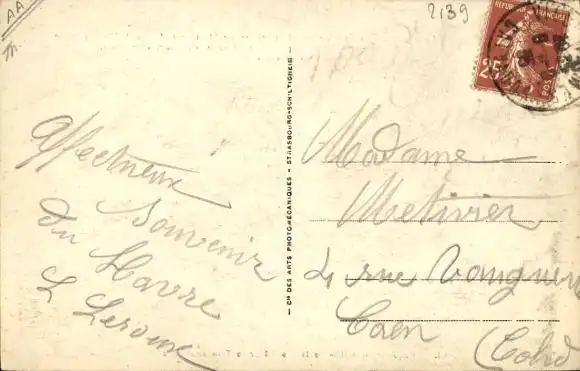 AA
2139
RÉPUBLIQUE FRANÇAISE
25
Affectueux
Souvenir
du Havre
L Leroux
Cie DES ARTS PHOTOMÉCANIQUES - STRASBOURG-SCHILTIGHEIM
Madame
Metivier
4 rue Vauquelin
Caen